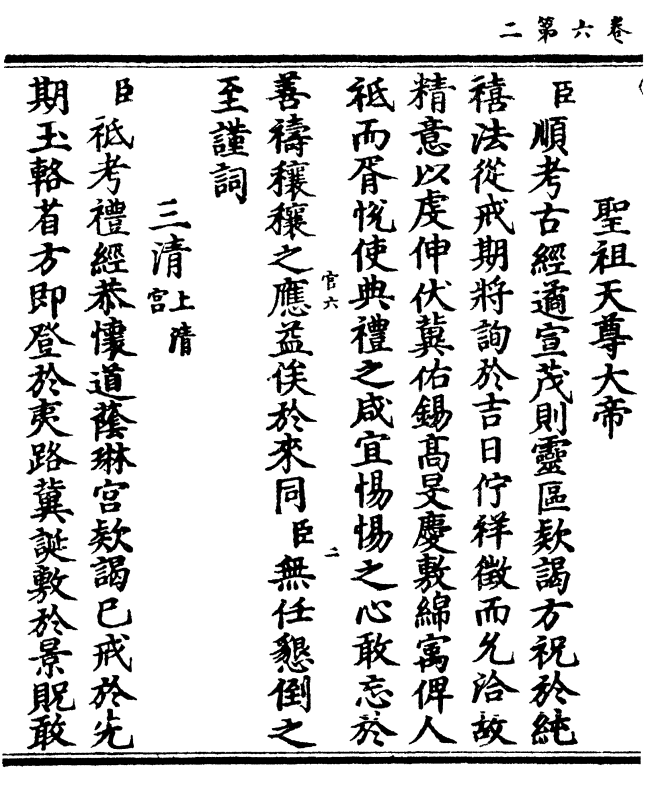 卷六第二
聖祖天尊大帝
臣順考古經遹宣茂則靈區欵謁方祝於純
禧法從戒期將詢於吉日佇祥徵而允洽故
精意以虔伸伏冀佑錫髙旻慶敷綿寓俾人
祇而胥悅使典禮之咸宜惕惕之心敢忘於
官六
二
善禱穰穰之應益俟於來同臣無任懇倒之
至謹詞
三清上清宮
臣祗考禮經恭懷道蔭琳宮欵謁巳戒於先
期玉輅省方即登於夷路冀誕敷於景貺敢